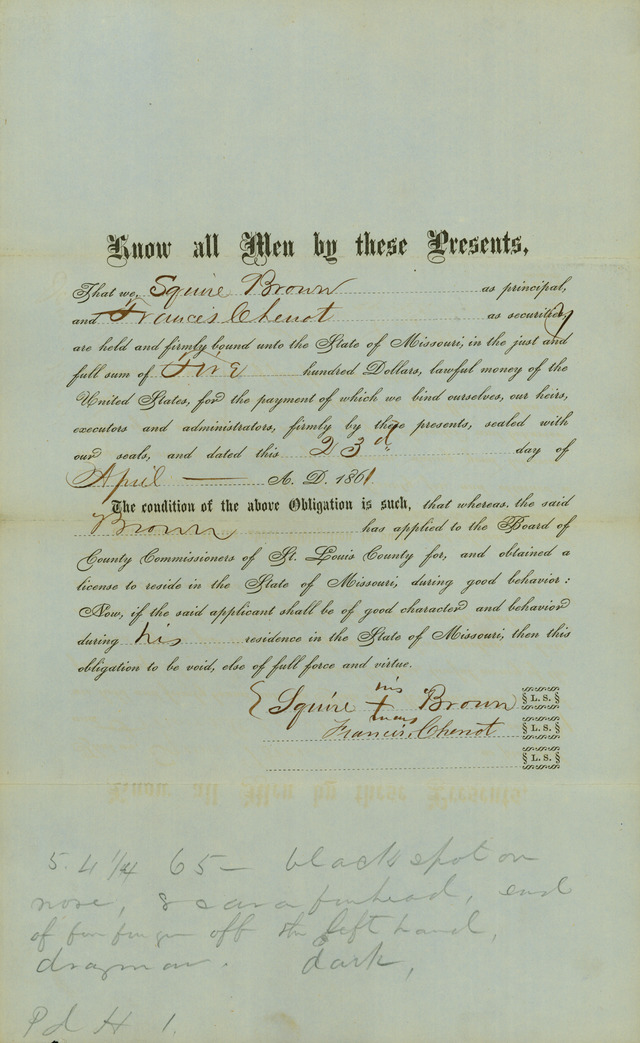 Know all Men by these Presents,
That we, Squire Brown as principal,
and Frances Chenot as security
are held and firmly bound unto the State of Missouri, in the just and
full sum of Five hundred Dollars, lawful money of the
United States, for the payment of which we bind ourselves, our heirs,
executors and administrators, firmly by these presents, sealed with
our seals, and dated this 23d day of
April — A. D. 1861
The condition of the above Obligation is such, that whereas, the said
Brown has applied to the Board of
County Commissioners of St. Louis County for, and obtained a
license to reside in the State of Missouri, during good behavior:
Now, if the said applicant shall be of good character and behavior
during his residence in the State of Missouri, then this
obligation to be void, else of full force and virtue.
his
Squire + Brown L. S.
mark
Francis Chenot L. S.
L. S.
5. 4 1/4 65 — black spot on
nose, & scar forehead, end
of fore finger off the left hand,
drayman. dark,
Pd H 1.